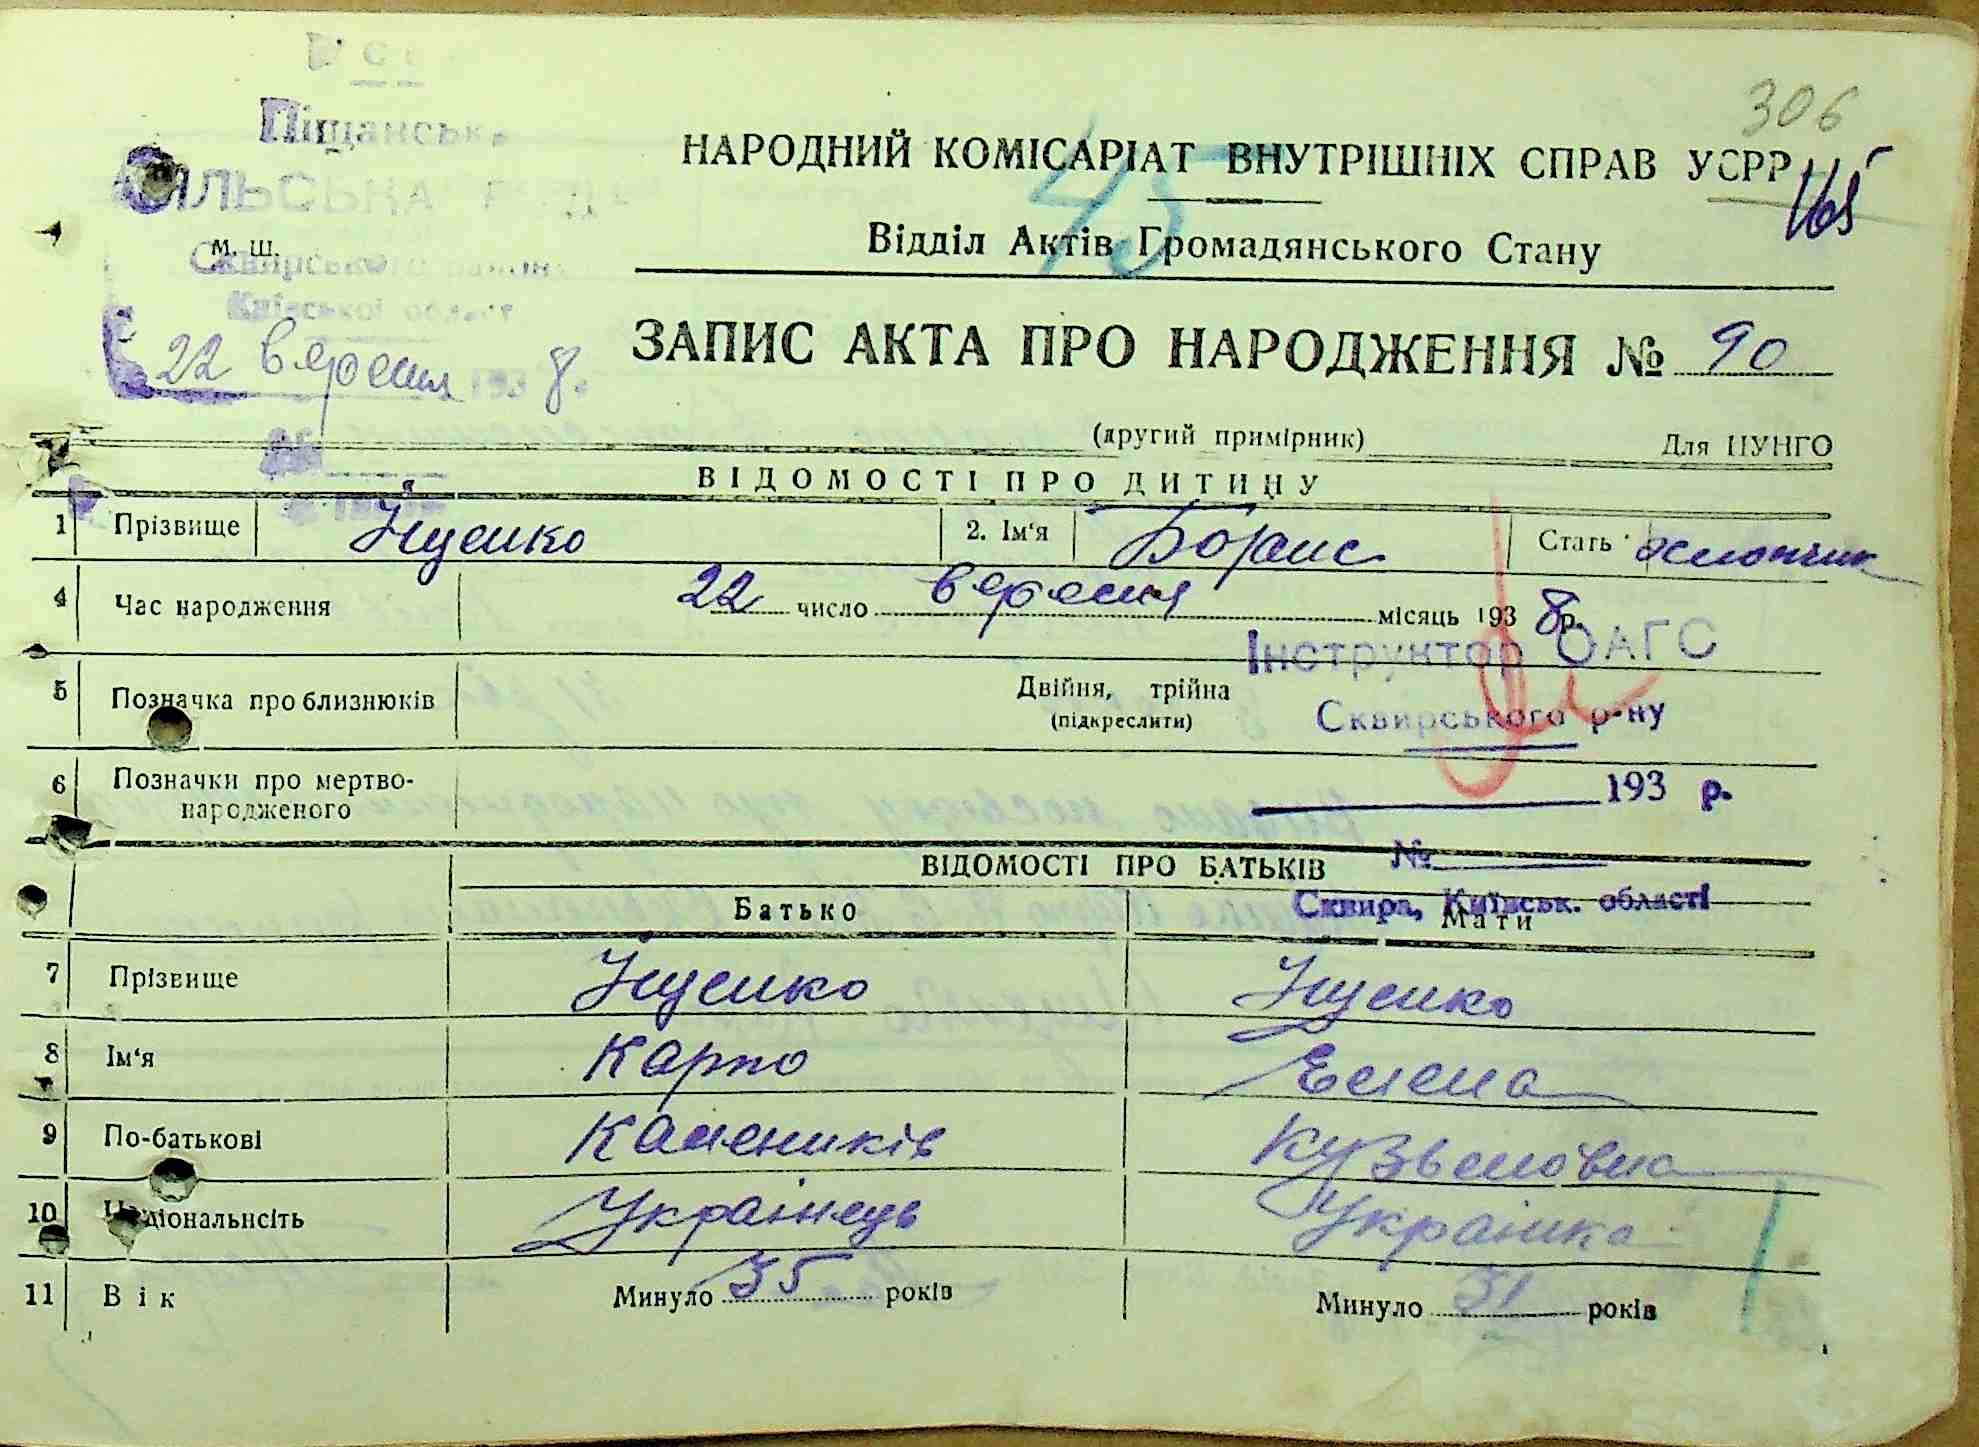 306
Піщанська
СІЛЬСЬКА РАДА
НАРОДНИЙ КОМІСАРІАТ ВНУТРІШНІХ СПРАВ УСРР
165
45
М. Ш.
Сквирського району
Відділ Актів Громадянського Стану
Київської області
22 вересня 1938 р.
ЗАПИС АКТА ПРО НАРОДЖЕННЯ № 90
(другий примірник) Для ЦУНГО
ВІДОМОСТІ ПРО ДИТИНУ
1 Прізвище Яценко 2. Ім'я Борис Стать хлопчик
4 Час народження 22 число вересня місяць 1938 р.
Інструктор ОАГС
5 Позначка про близнюків Двійня, трійна
(підкреслити)
Сквирського р-ну
6 Позначки про мертво-
народженого
193 р.
№
ВІДОМОСТІ ПРО БАТЬКІВ
Сквира, Київськ. області
Батько Мати
7 Прізвище Яценко Яценко
8 Ім'я Карпо Елена
9 По-батькові Кузьмовна
10 Національнсіть Українець Українка
11 Вік Минуло 35 років Минуло 31 років